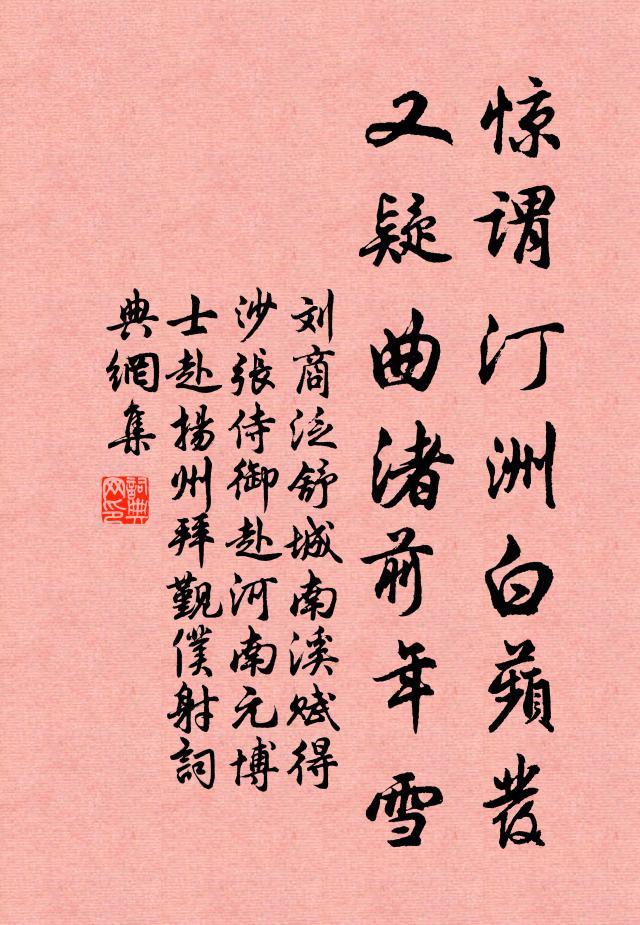 惊谓汀洲白蘋发
又疑曲渚前年雪
刘商泛舒城南溪赋得
沙張侍御赴河南元博
士赴揚州拜觐僕射詞
典網集
詞典网印